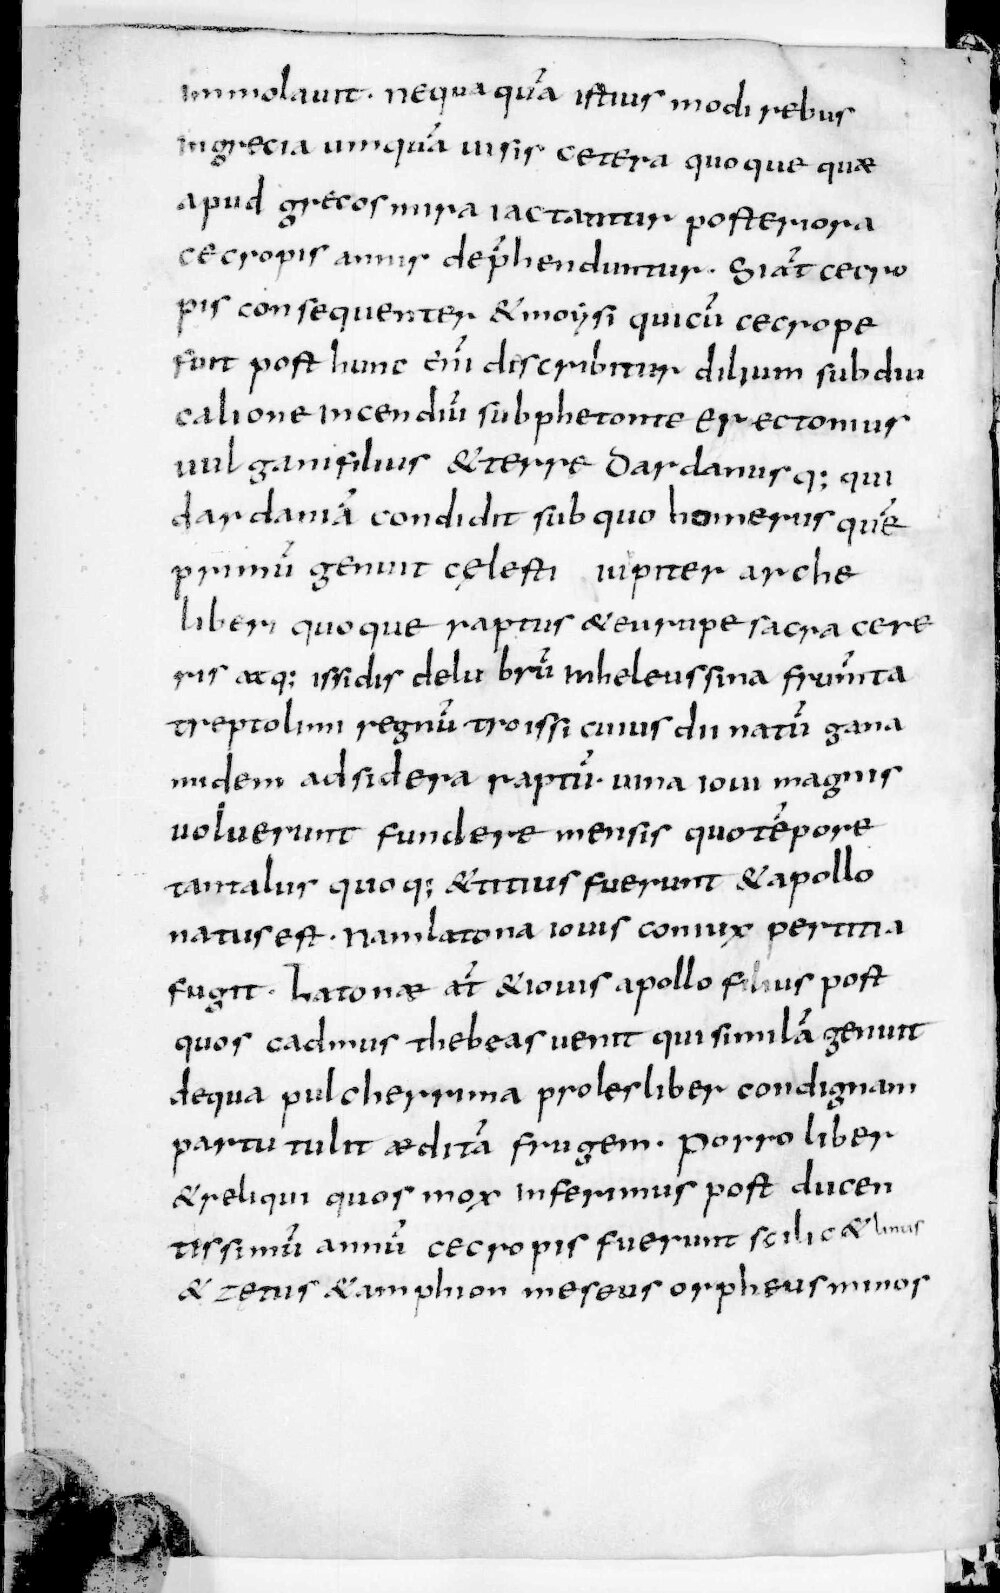 immolauit. nequaquā istius modi rebus
in grecia umquā uisis cetera quoque quæ
apud grecos mira iactantur posteriora
cecropis annis dep̄henduntur. Si aūt cecro
pis consequenter & moysi qui cū cecrope
fuit post hunc eni discribitur diluum sub diu
calione incendiū sub phetonte erectonius
uulgani filius & terre Dardanus q; qui
dardaniā condidit sub quo homerus quē
primū genuit cęlesti iupiter arche
liberi quoque raptus & eurupe sacra cere
ris atq; issidis delu brū in heleussina frum̄ta
treptolimi regnū troissi cuius dii natū gana
midem ad sidera raptū. uina ioui magnis
uoluerunt fundere mensis quo tēpore
tantalus quoq; & titius fuerunt & apollo
natus est. Nam latona iouis coniux pertitia
fugit. Latonæ aūt & iouis apollo filius post
quos cadmus thebeas uenit qui similā genuit
dequa pulcherrima proles liber condignam
partu tulit ædita frugem. Porro liber
& reliqui quos mox inferimus post ducen
tissimū annū cecropis fuerunt scilic& linus
& zetus & amphion meseus orpheus minos